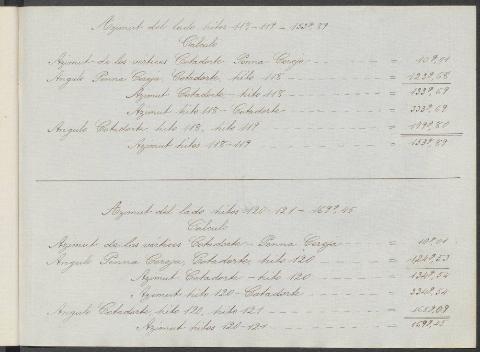 Azimut del lado, hitos 118-119 = 153º,89
Cálculo
Azimut de los vértices Cotadorte Penna Cereja = 10º,01
Angulo Penna Cereja, Cotadorte, hito 118 = 123º,68
Azimut Cotadorte - hito 118 = 133º,69
Azimut hito 118 - Cotadorte = 333º,69
Angulo Cotadorte, hito 118, hito 119
Azimut hitos 118-119 = 153º,89
Azimut del lado hitos 120-121 = 169º,45
Cálculo
Azimut de los vértices Cotadorte - Penna Cereja = 10º,01
Angulo Penna Cereja, Cotadorte, hito 120 = 124º,53
Azimut Cotadorte - hito 120 = 134º,54
Azimut hito 120 - Cotadorte = 334º,54
Angulo Cotadorte, hito 120, hito 121
Azimut hitos 120-121 = 169º,45